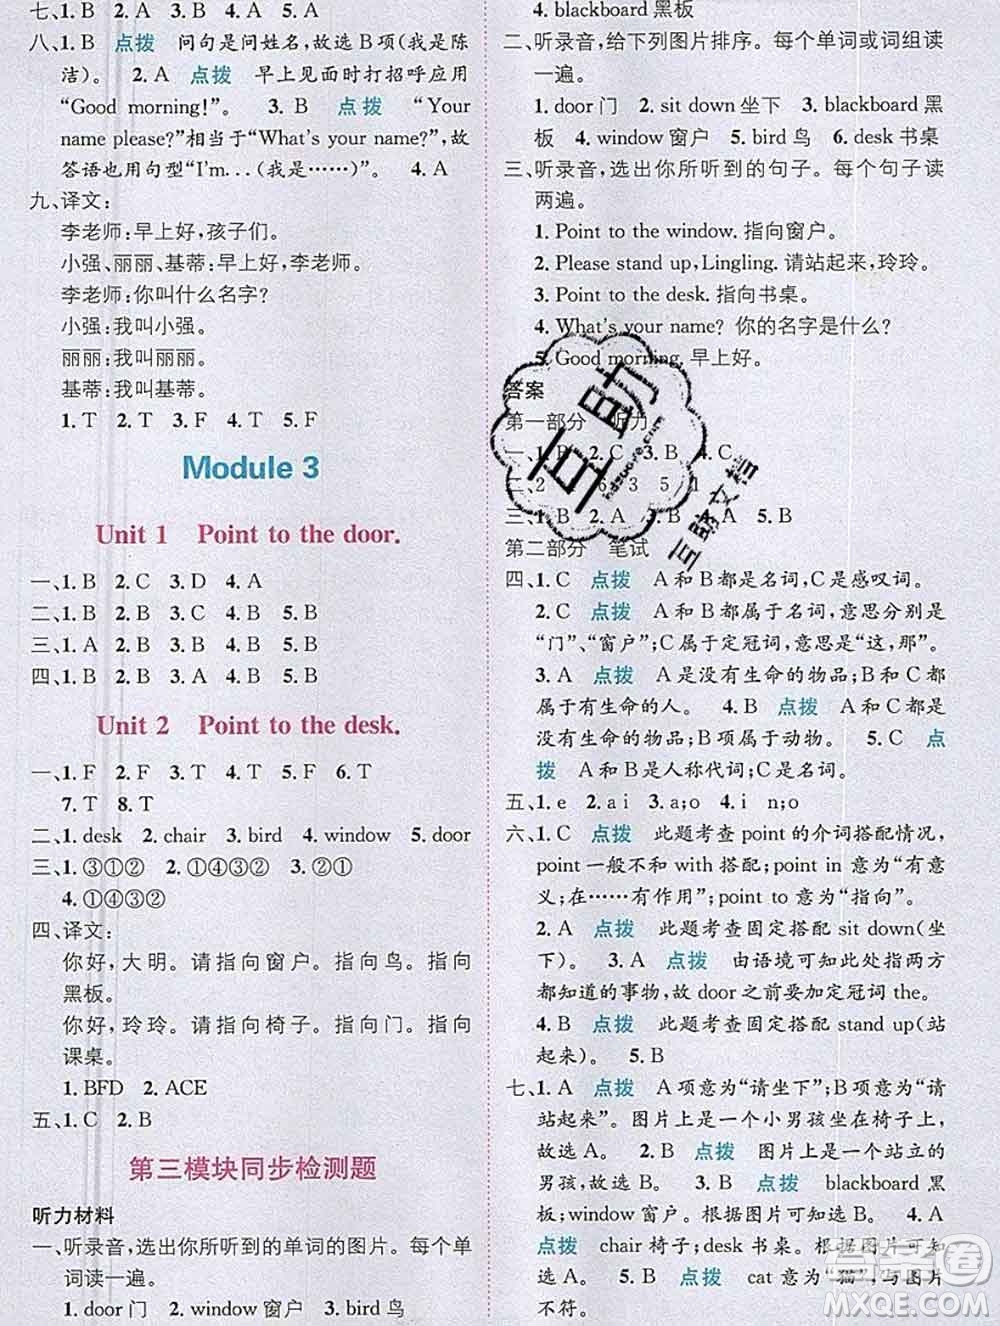 七、1. B　2. B　3. A　4. B　5. A
八、1. B　点拨　问句是问姓名,故选 B 项(我是陈
洁)。　2. A　点拨　早上见面时打招呼应用
“Good morning!”。　3. B　点拨　“Your
name please?”相当于“What's your name?”,故
答语也用句型“I'm. . . (我是……)”。　4. A
九、译文:
李老师:早上好,孩子们。
小强、丽丽、基蒂:早上好,李老师。
李老师:你叫什么名字?
小强:我叫小强。
丽丽:我叫丽丽。
基蒂:我叫基蒂。
1. T　2. T　3. F　4. T　5. F
Module 3
Unit 1　Point to the door.
一、1. B　2. C　3. D　4. A
二、1. B　2. B　3. A　4. B　5. B
三、1. A　2. B　3. B　4. A　5. B
四、1. B　2. B　3. A　4. B　5. A
Unit 2　Point to the desk.
一、1. F　2. F　3. T　4. T　5. F　6. T
7. T　8. T
二、1. desk　2. chair　3. bird　4. window　5. door
三、1. ③①②　2. ①④③②　3. ②①
4. ①④③②
四、译文:
你好,大明。请指向窗户。指向鸟。指向
黑板。
你好,玲玲。请指向椅子。指向门。指向
课桌。
1. BFD　2. ACE
五、1. C　2. B
第三模块同步检测题
听力材料
一、听录音,选出你所听到的单词的图片。每个单
词读一遍。
1. door 门　2. window 窗户　3. bird 鸟
4. blackboard 黑板
二、听录音,给下列图片排序。每个单词或词组读
一遍。
1. door 门　2. sit down 坐下　3. blackboard 黑
板　4. window 窗户　5. bird 鸟　6. desk 书桌
三、听录音,选出你所听到的句子。每个句子读
两遍。
1. Point to the window. 指向窗户。
2. Please stand up, Lingling. 请站起来,玲玲。
3. Point to the desk. 指向书桌。
4. What's your name? 你的名字是什么?
5. Good morning. 早上好。
答案
第一部分　听力
一、1. A　2. C　3. B　4.
二、2　6　3　5　1
三、1. B　2. A　3. B　A　5. B
第二部分　笔试
四、1. C　点拨　A 和 B 都是名词,C 是感叹词。
2. C　点拨　A 和 B 都属于名词,意思分别是
“门”、“窗户”;C 属于定冠词,意思是“这,那”。
3. A　点拨　A 是没有生命的物品;B 和 C 都
属于有生命的人。　4. B　点拨　A 和 C 都是
没有生命的物品;B 项属于动物。　5. C　点
拨　A 和 B 是人称代词;C 是名词。
五、1. e　2. a i　3. a;o　4. i　n;o
六、1. C　点拨　此题考查 point 的介词搭配情况,
point 一般不和 with 搭配;point in 意为“有意
义;在……有作用”;point to 意为“指向”。
2. A　点拨　此题考查固定搭配 sit down(坐
下)。　3. A　点拨　由语境可知此处指两方
都知道的事物,故 door 之前要加定冠词 the。
4. B　点拨　此题考查固定搭配 stand up(站
起来)。　5. B
七、1. A　点拨　A 项意为“请坐下”;B 项意为“请
站起来”。图片上是一个小男孩坐在椅子上,
故选 A。　2. B　点拨　图片上是一个站立的
男孩,故选 B。　3. B　点拨　blackboard 黑
板;window 窗户。根据图片可知选 B。　4. A
点拨　chair 椅子;desk 书桌。根据图片可知
选 A。　5. B　点拨　cat 意为“猫”,与图片
不符。
互助
hdzuoye.com
互助文档
答案圈
MXQE.COM